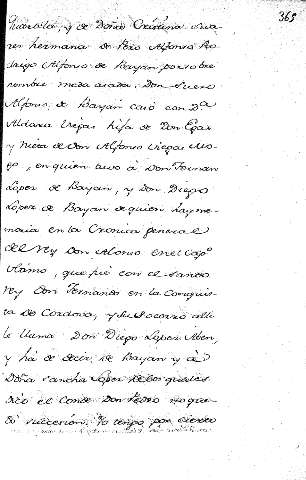 365
y de Doña Cristina Sua
res hermana de Pero Alfonso Ro
drigo Alfonso de Bayan por sobre
nombre Don Suero
Alfonso de Bayan casó con D.ª
Aldara Viegas hija de Don Egas
y Nieta de Don Alfonso Viegas Mo
ço, en quien tuvo á Don Fernan
Lopez de Bayan, y Don Diego
Lopez de Bayan de quien hay me
moria en la Cronica general
del Rey Don Alonso en el Cap.º
que fué con el Santo
Rey Don Fernando en la Conquis
ta de Cordova, y su Socorro alli
le llama Don Diego Lopez Aben,
y há de decir de Bayan y á
Doña Sancha Lopez de los quales
dice el Conde Don Pedro no que
dó succesion. Yo tengo por cierto